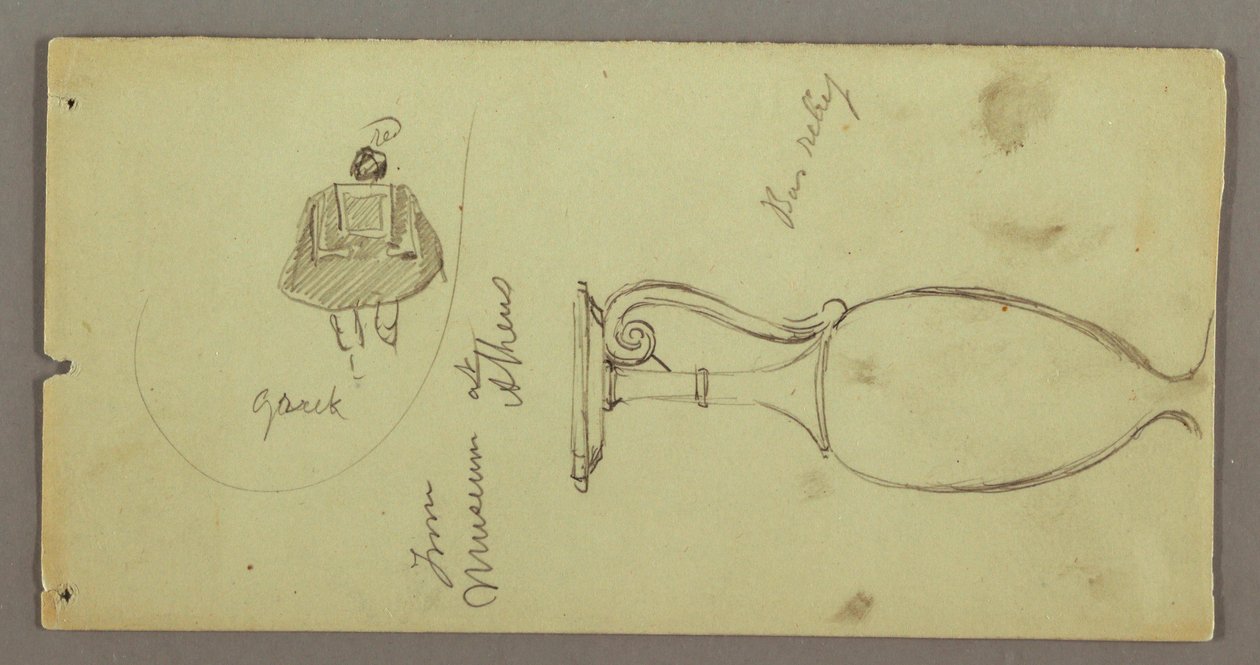 red
From
Museum at
Athens
Bas relief